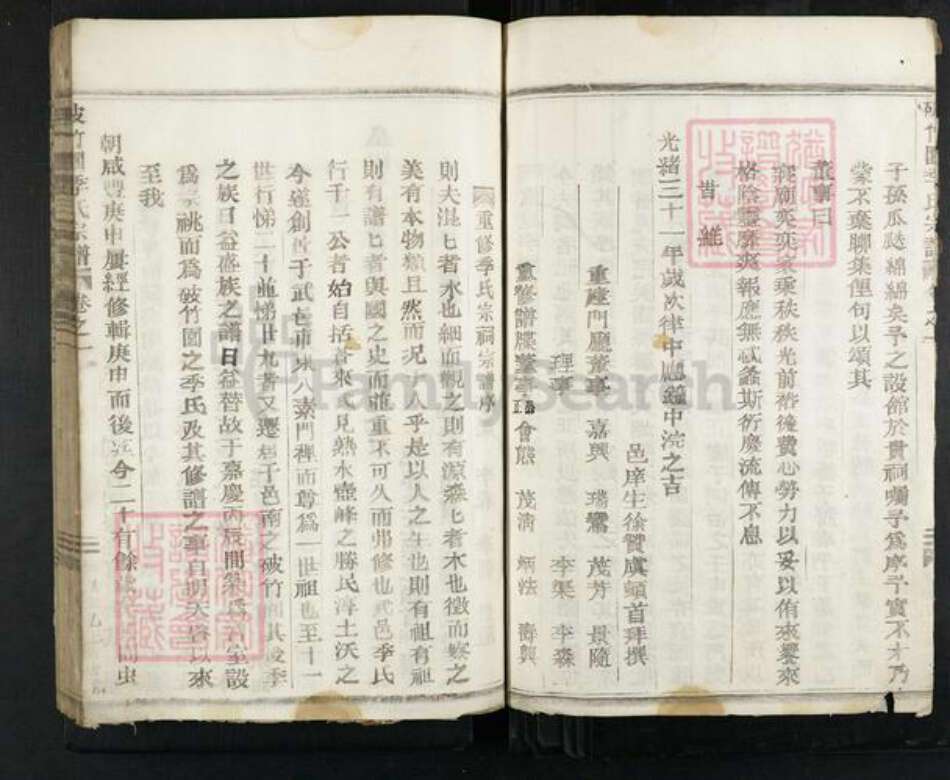 子孫瓜瓞綿綿矣予之設館於貴祠囑予為序予實不才乃
蒙不棄聊集俚句以頌其
董事曰
寢廟奕奕 秩秩光前裕後費心勞力以妥以侑來饗來
格陰靈靡爽報應無忒螽斯衍慶流傳不息
旹 龍
光緒三十一年歲次律中 中浣之吉
邑庠生徐贊虞頓首拜撰
重建門廳董事 嘉興 茂芳 景隨
理事 李渠 李森
重修譜牒董事 會熊 茂清 炳法 壽興
重修季氏宗祠宗譜序
則夫混匕者水也細而觀之則有源森匕者木也徵而察之
美有本物類且然而況人乎是以人之生也則有祖有祖
則有譜匕者與國之史而並重不可久而弗修也武邑季氏
行千一公者始自括蒼來 見熱水壺峰之勝民淳土沃之
今遂創 于武邑市東八素門禪而尊為一世祖也至十一
世行悌二十並悌廿九者又遷居于邑南之破竹 其 季
之族日益盛族之譜日益替故于嘉慶丙辰間 室設
為 祧而為破竹園之季氏及其修譜之事自明天啓以來
至我
朝咸豐庚申屢經修輯庚申而後 今二十有餘 虫
季氏宗譜 卷之一
FamilySearch